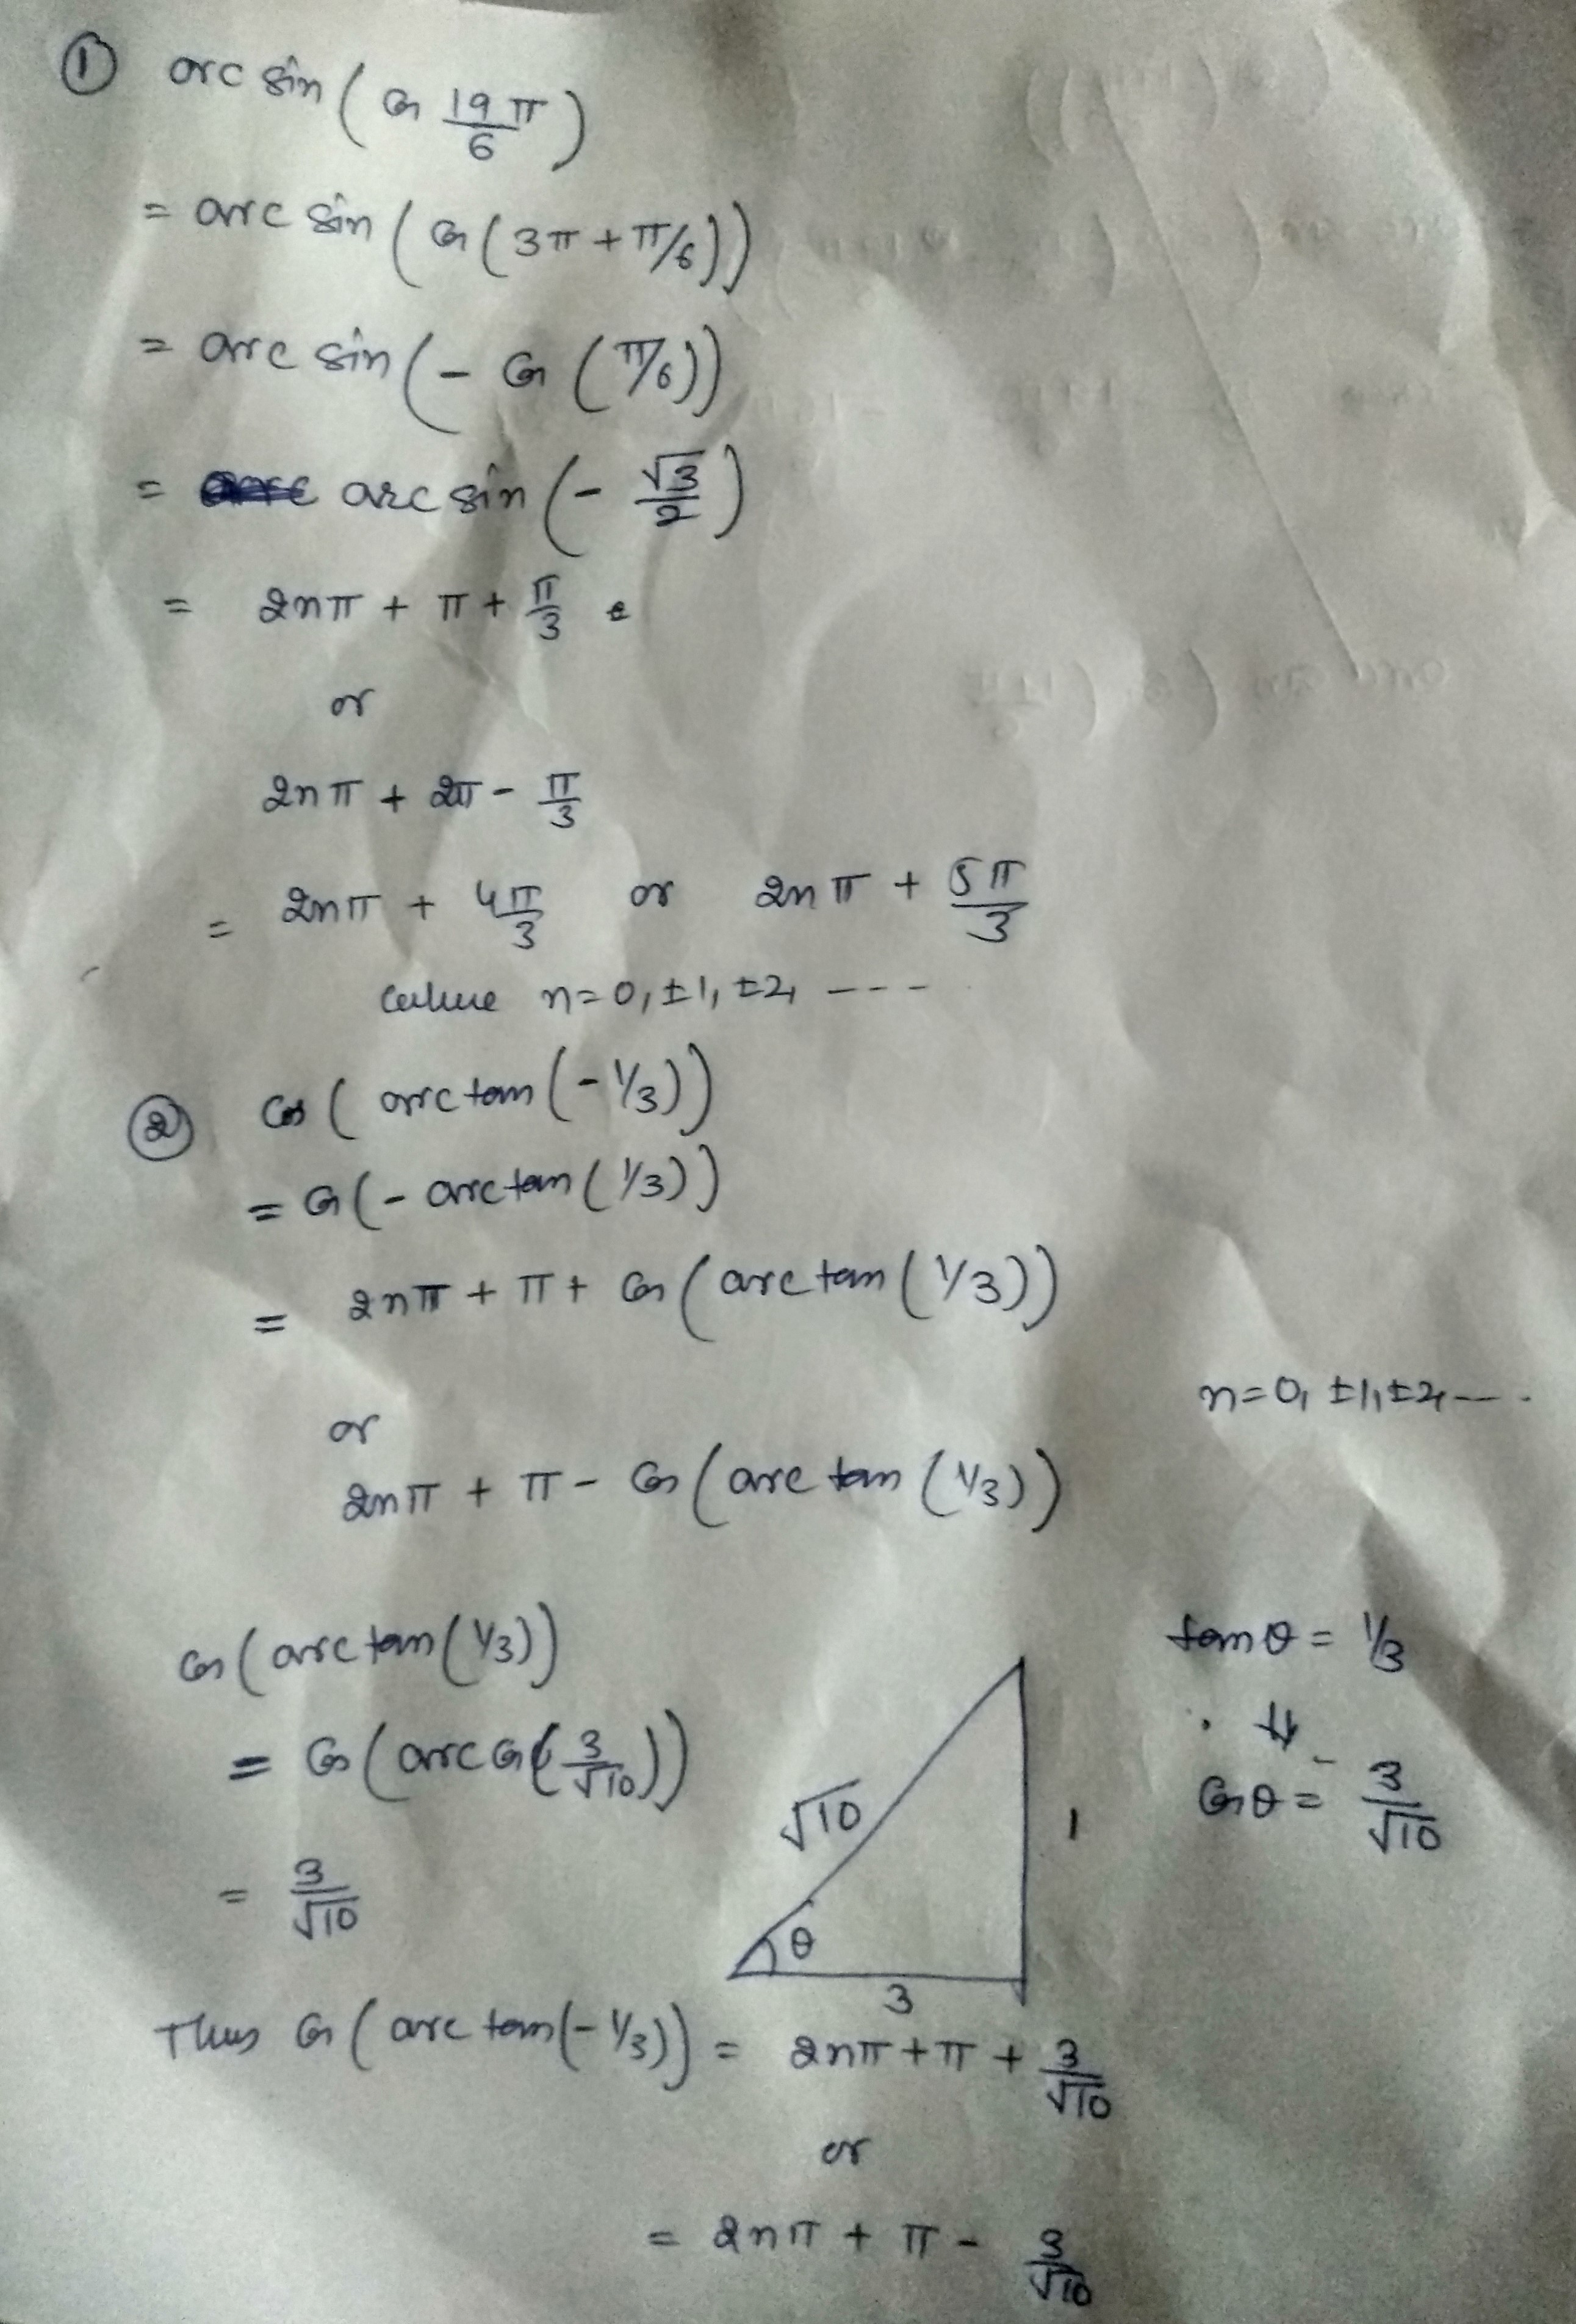 ① arc sin ( cos 19π/6 )
= arc sin ( cos ( 3π + π/6 ))
= arc sin ( - cos ( π/6 ))
= arc sin ( - √3/2 )
= 2nπ + π + π/3
or
2nπ + 2π - π/3
= 2nπ + 4π/3 or 2nπ + 5π/3
where n=0, ±1, ±2, ----
② cos ( arc tan ( - 1/3 ))
= cos ( - arc tan ( 1/3 ))
= 2nπ + π + cos ( arc tan ( 1/3 ))
n=0, ±1, ±2, ----
or
2nπ + π - cos ( arc tan ( 1/3 ))
cos ( arc tan ( 1/3 ))
= cos ( arc cos ( 3/√10 ))
= 3/√10
tan θ = 1/3
⇓
cos θ = 3/√10
√10
1
θ
3
Thus cos ( arc tan ( - 1/3 )) = 2nπ + π + 3/√10
or
= 2nπ + π - 3/√10